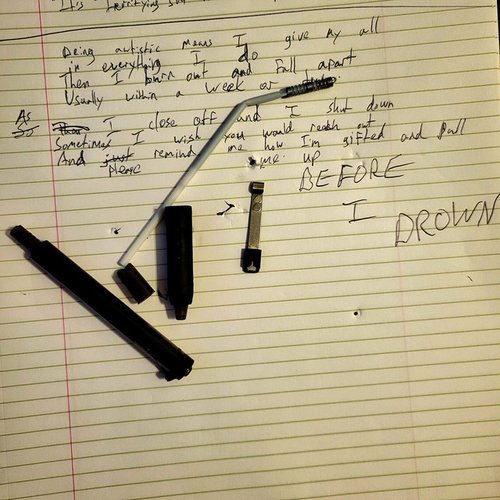 It's terrifying
Being autistic means I give my all
in everything I do
Then I burn out and fall apart
Usually within a week or
As I close off and I shut down
Sometimes I wish you would reach out
And just remind me how I'm gifted and pull
Please me up
BEFORE
I
DROWN